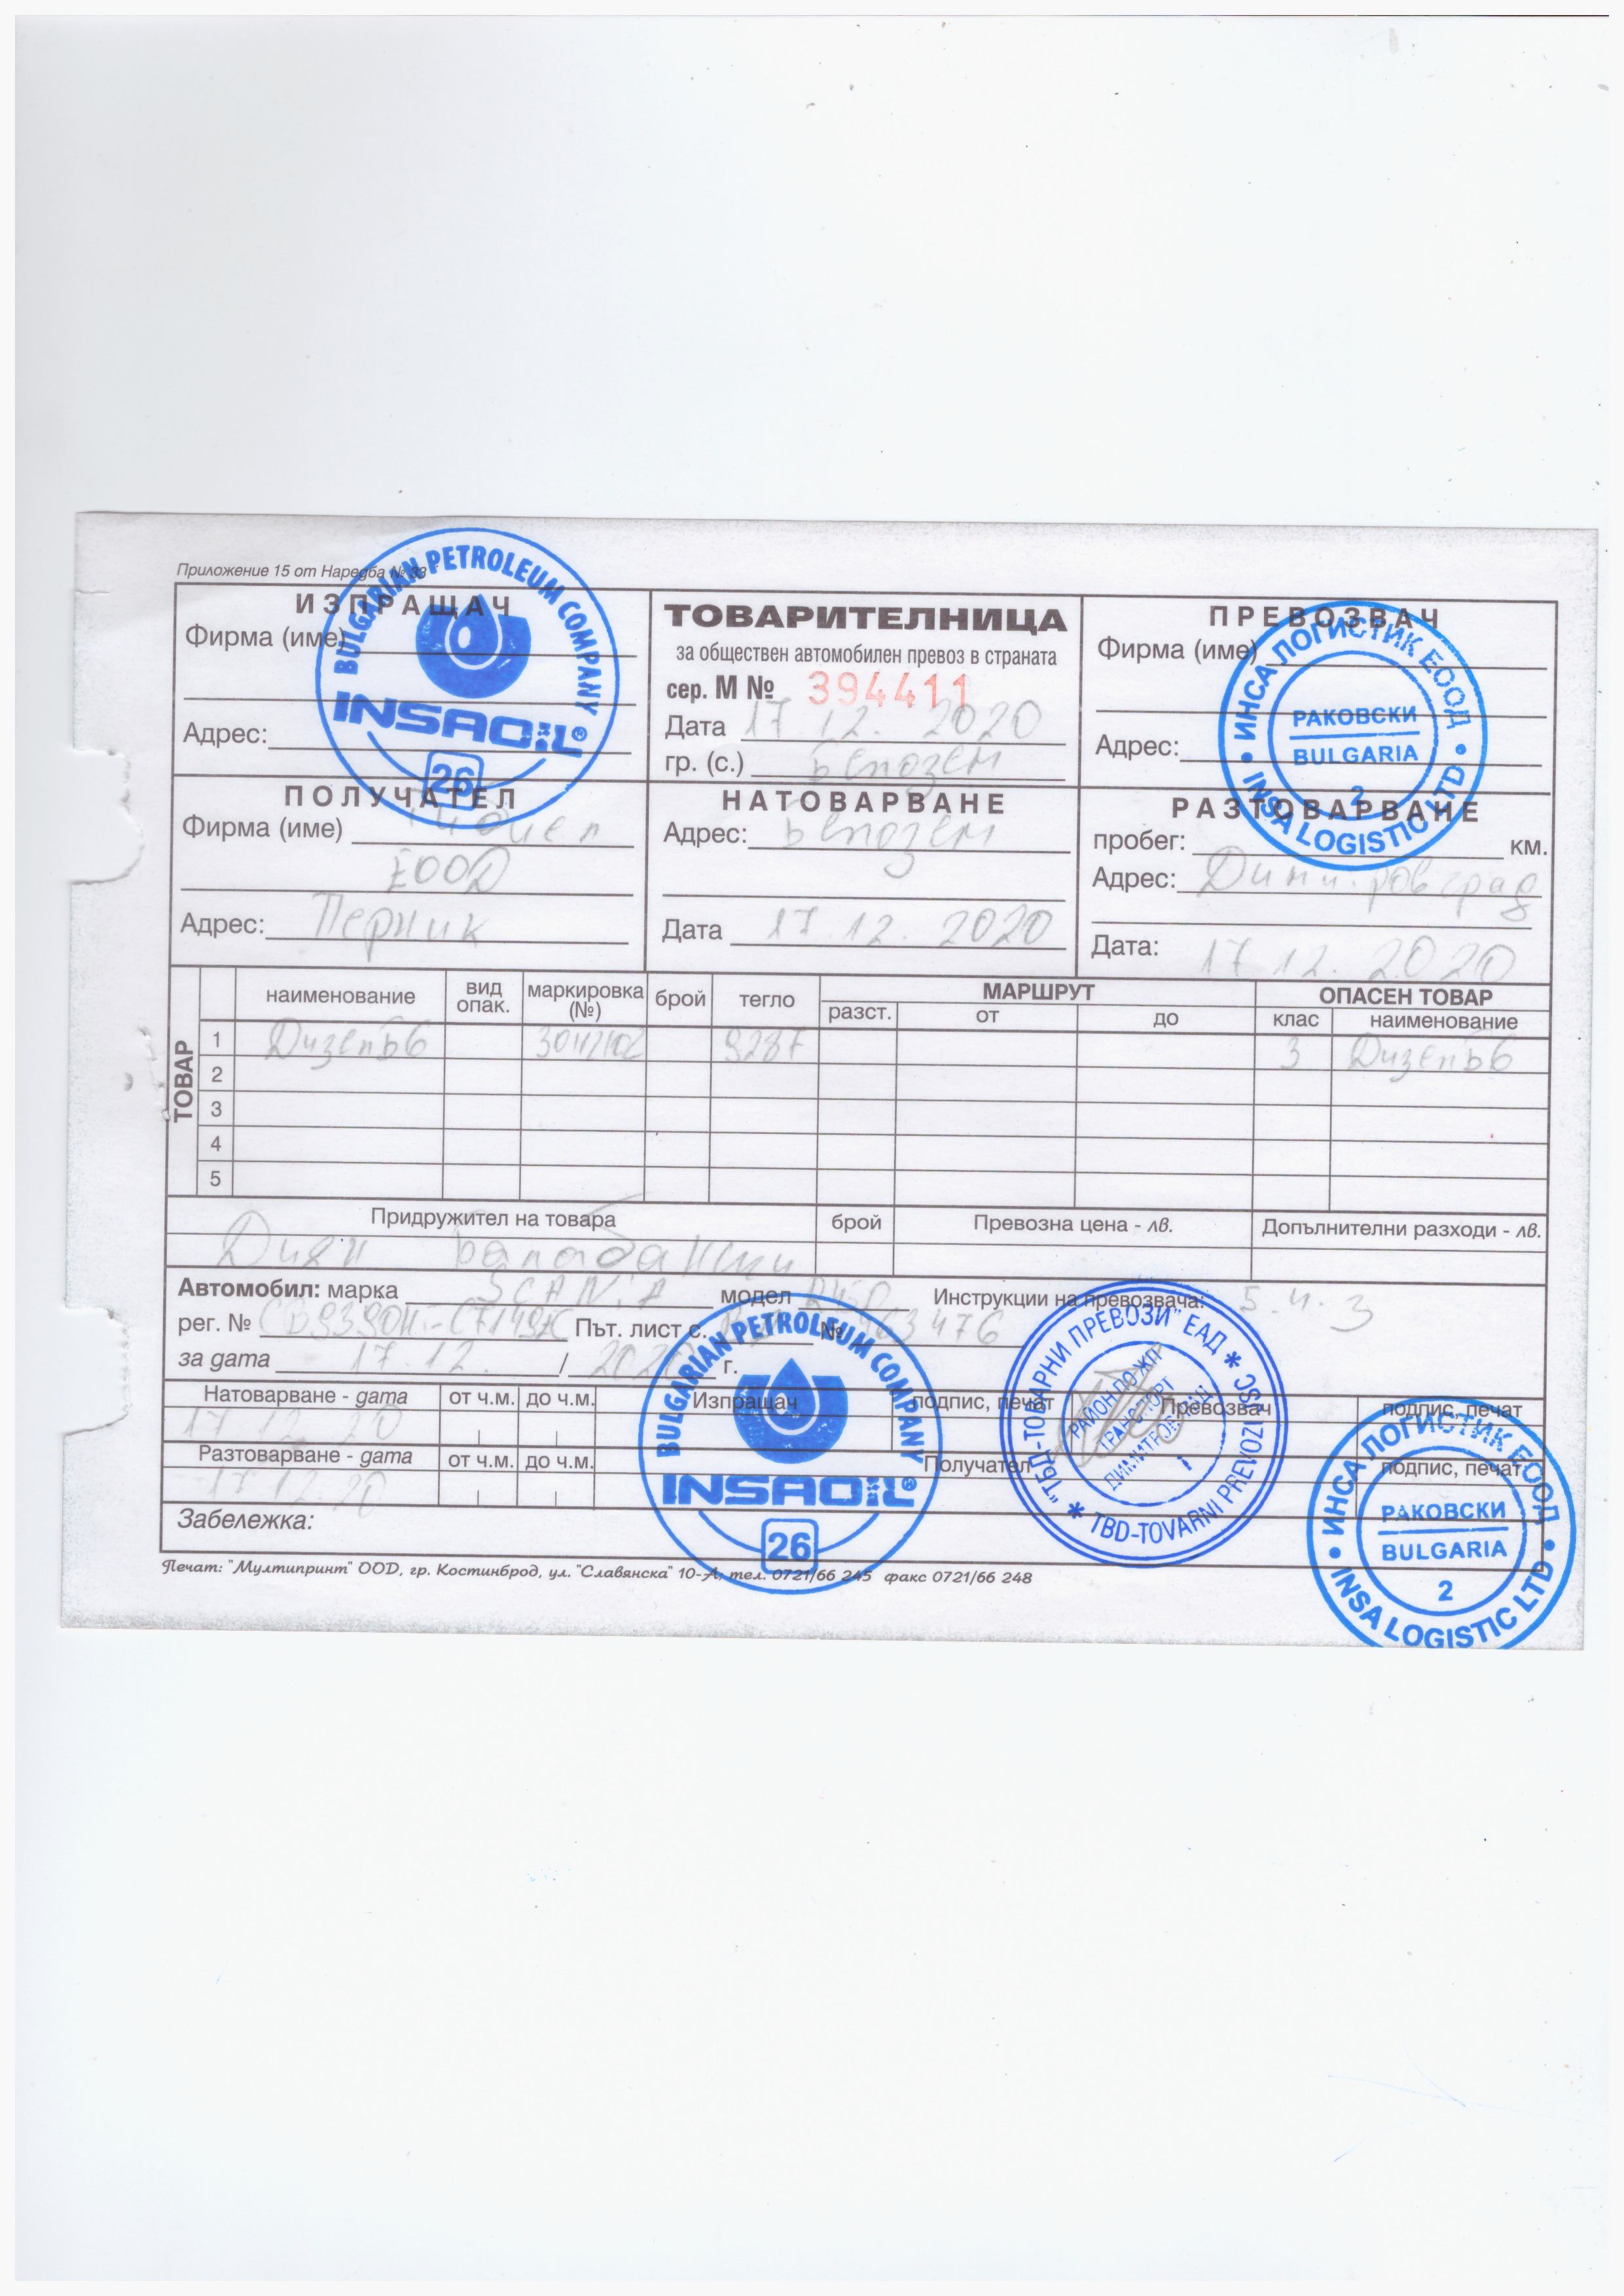 Приложение 15 от Наредба № 33
ИЗПРАЩАЧ
Фирма (име)
Адрес:
BULGARIAN PETROLEUM COMPANY
INSAOIL®
26
ТОВАРИТЕЛНИЦА
за обществен автомобилен превоз в страната
сер. М № 394411
Дата 17.12. 2020
гр. (с.) Белозем
ПРЕВОЗВАЧ
Фирма (име)
Адрес:
ИНСА ЛОГИСТИК ЕООД
РАКОВСКИ
BULGARIA
2
INSA LOGISTIC LTD
ПОЛУЧАТЕЛ
Фирма (име)
ЕООД
Адрес: Перник
НАТОВАРВАНЕ
Адрес: Белозем
Дата 17.12. 2020
РАЗТОВАРВАНЕ
пробег: км.
Адрес: Димитровград
Дата: 17.12. 2020
ТОВАР
наименование вид опак. маркировка (№) брой тегло МАРШРУТ ОПАСЕН ТОВАР
разст. от до клас наименование
1 Дизель Б6 9287 3 Дизель Б6
2
3
4
5
Придружител на товара брой Превозна цена - лв. Допълнителни разходи - лв.
Диян Балабански
Автомобил: марка SCANIA модел R450 Инструкции на превозвача: 5.4.3
рег. № Път. лист с. № 463476
за дата 17.12. / 2020 г.
Натоварване - дата от ч.м. до ч.м. Изпращач подпис, печат Превозвач подпис, печат
17 12 20
Разтоварване - дата от ч.м. до ч.м. Получател подпис, печат
17 12 20
Забележка:
BULGARIAN PETROLEUM COMPANY
INSAOIL®
26
"ТБД-ТОВАРНИ ПРЕВОЗИ" ЕАД
РАЙОН ПО ЖП
ТРАНСПОРТ
ДИМИТРОВГРАД
1
TBD-TOVARNI PREVOZI JSC
ИНСА ЛОГИСТИК ЕООД
РАКОВСКИ
BULGARIA
2
INSA LOGISTIC LTD
Печат: "Мултипринт" ООД, гр. Костинброд, ул. "Славянска" 10-А, тел. 0721/66 245 факс 0721/66 248